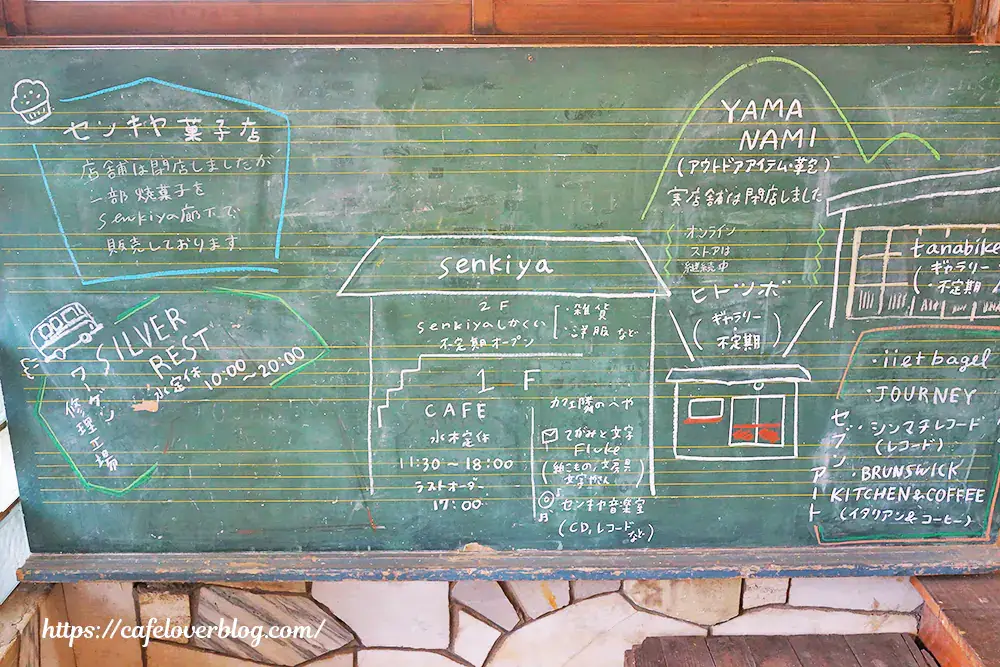 センキヤ菓子店
店舗は閉店しましたが
一部焼菓子を
senkiya廊下で
販売しております。
SILVER
REST
ワーゲン
修理工場
水定休 10:00～20:00
senkiya
2F
senkiyaしかくい
不定期オープン
・雑貨
・洋服など
1F
CAFE
水木定休
11:30～18:00
ラストオーダー
17:00
カフェ隣の
てがみと文字
Fluke
(紙こもの、文房具
センキヤ音楽室
(CD、レコードなど)
YAMA
NAMI
(アウトドアアイテム・革包)
実店舗は閉店しました
オンライン
ストアは
継続中
ヒトツボ
(ギャラリー
・不定期)
tanabike
(ギャラリー
・不定期)
セブンアート
・iietbagel
・JOURNEY
・シンマチレコード
(レコード)
・BRUNSWICK
KITCHEN&COFFEE
(イタリアン&コーヒー)
https://cafeloverblog.com/